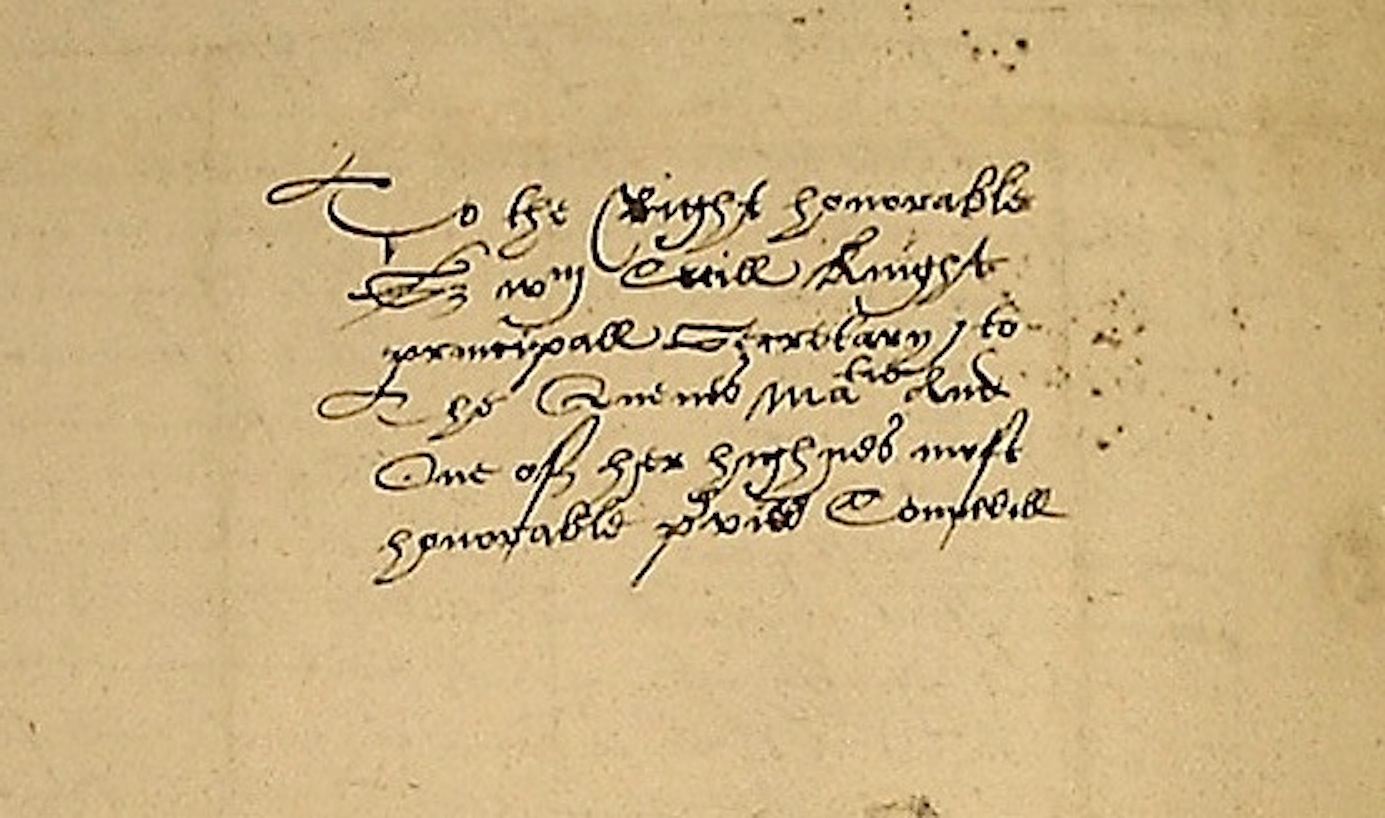 To the Right honorable
Sr wm Cecill Knight
principall Secretary / to
The Quenes Matie And
One of her highnes most
honorable prvie Counsell